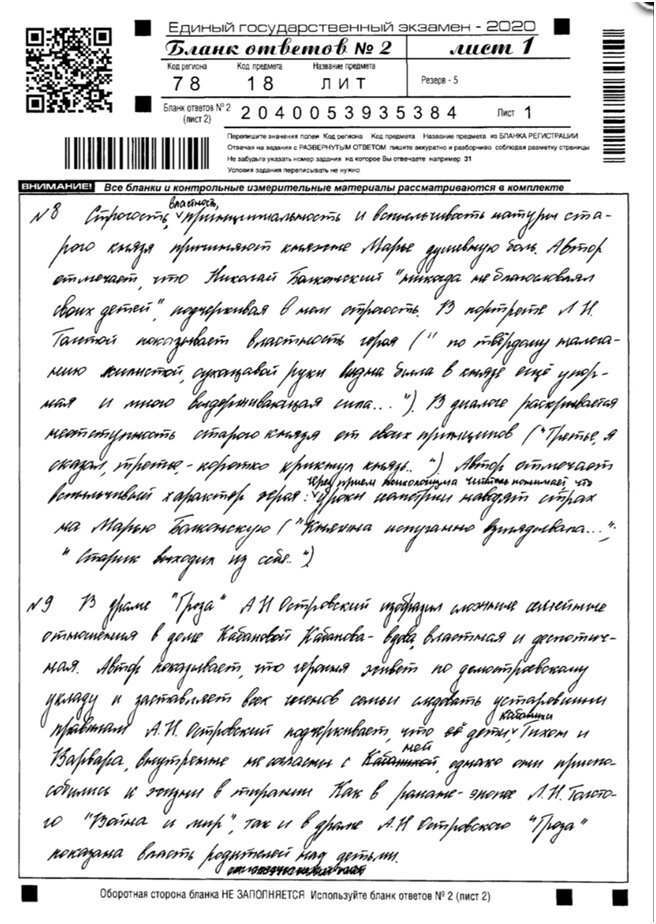 Единый государственный экзамен - 2020
Бланк ответов № 2 лист 1
Код региона Код предмета Название предмета
78 18 ЛИТ Резерв - 5
Бланк ответов № 2 (лист 2) 2040053935384 Лист 1
Перепишите значения полей Код региона Код предмета Название предмета из БЛАНКА РЕГИСТРАЦИИ
Отвечая на задания с РАЗВЕРНУТЫМ ОТВЕТОМ пишите аккуратно и разборчиво соблюдая разметку страницы
Не забудьте указать номер задания на которое Вы отвечаете например 31
Условия задания переписывать не нужно
ВНИМАНИЕ! Все бланки и контрольные измерительные материалы рассматриваются в комплекте
N8 Строгость, властность, принципиальность и вспыльчивость натуры ста-
рого князя причиняют княжне Марье душевную боль. Автор
отмечает, что Николай Болконский "никогда не благословлял
своих детей", подчеркивая в нем строгость. В портрете Л.Н.
Толстой показывает властность героя ("по твёрдому налега-
нию жилистой, сухощавой руки видна была в князе ещё упор-
ная и много выдерживающая сила..."). В диалоге раскрывается
неотступность старого князя от своих принципов ("Третье, я
сказал, третье,- коротко крикнул князь..."). Автор отмечает
вспыльчивый характер героя: через прием психологизма читатель понимает, что уроки геометрии наводят страх
на Марью Болконскую ("Княжна испуганно взглядывала...";
"Старик выходил из себя..")
N9 В драме "Гроза" А Н Островский изобразил сложные семейные
отношения в доме Кабановой Кабанова- вдова, властная и деспотич-
ная. Автор показывает, что героиня живет по домостроевскому
укладу и заставляет всех членов семьи следовать устаревшим
правилам А.Н. Островский подчеркивает, что её дети Кабанихи, Тихон и
Варвара, внутренне не согласны с Кабанихой ней, однако они приспо-
собились к жизни в тирании Как в романе-эпопее Л.Н. Толсто-
го "Война и мир", так и в драме А.Н Островского "Гроза"
показана власть родителей над детьми.
Оборотная сторона бланка НЕ ЗАПОЛНЯЕТСЯ Используйте бланк ответов № 2 (лист 2)